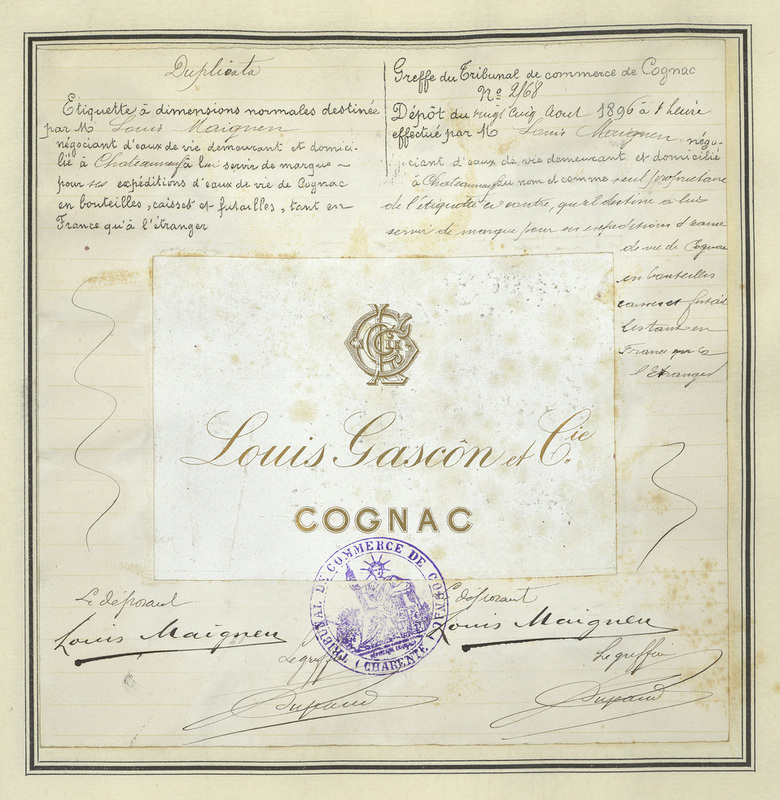 Duplicata
Etiquette à dimensions normales destinée
par Mr Louis Maignen
négociant d'eaux de vie demeurant et domici-
lié à Chateauneuf à lui servir de marque
pour ses expéditions d'eaux de vie de Cognac
en bouteilles, caisses et futailles, tant en
France qu'à l'étranger
Greffe du Tribunal de commerce de Cognac
No 2168
Dépôt du vingt cinq Aout 1896 à 1 heure
effectué par Mr Louis Maignen négo-
ciant d'eaux de vie demeurant et domicilié
à Chateauneuf au nom et comme seul propriétaire
de l'étiquette ci contre, qu'il destine à lui
servir de marque pour ses expéditions d'eaux
de vie de Cognac
en bouteilles
caisses et futail
les tant en
France qu'à
l'Etranger
Louis Gascôn et Cie
COGNAC
TRIBUNAL DE COMMERCE DE COGNAC
(CHARENTE)
Le déposant
Louis Maignen
Le greffier
Le déposant
Louis Maignen
Le greffier